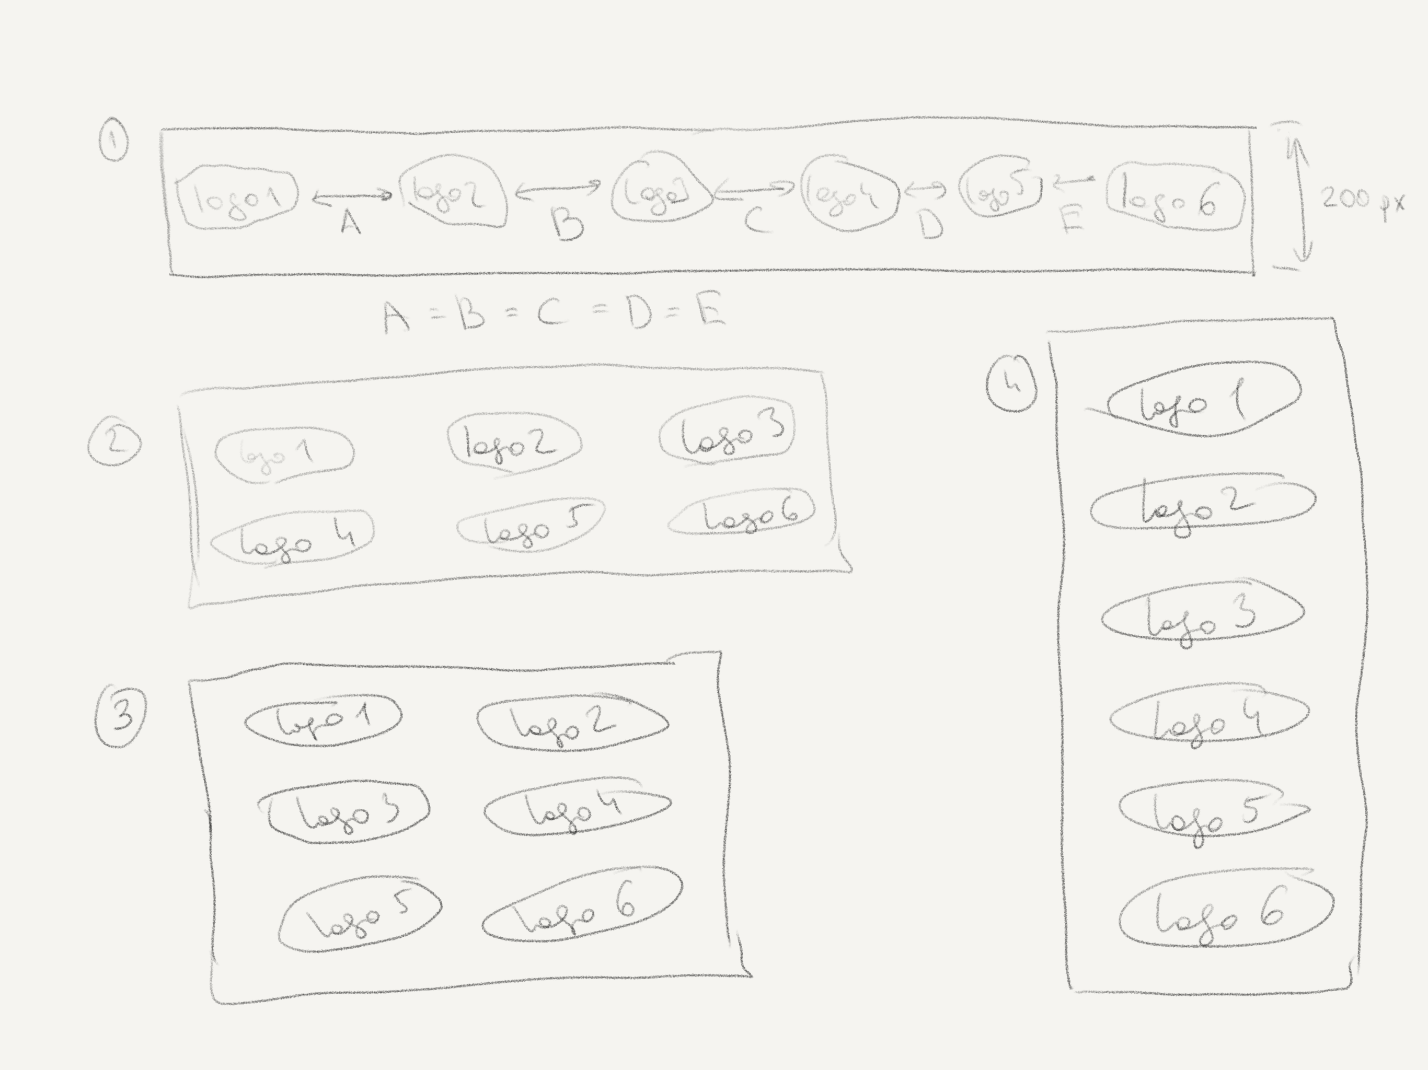 1
logo1 logo2 logo3 logo4 logo5 logo 6
A B C D E
200 px
A = B = C = D = E
2
logo 1 logo2 logo 3
logo 4 logo 5 logo 6
3
logo 1 logo 2
logo 3 logo 4
logo 5 logo 6
4
logo 1
logo 2
logo 3
logo 4
logo 5
logo 6